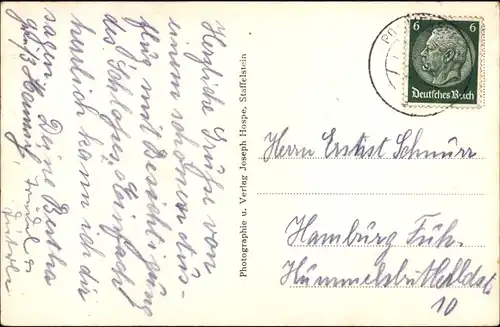 Herzliche Grüße von
einem schönen Aus-
flug mit Besichtigung
des Schlosses. Einfach
herrlich kann ich dir
sagen. Deine Bertha
Gruß
Photographie u. Verlag Joseph Hospe, Staffelstein
6 6
Deutsches Reich
Herrn Ernst Schnurr
Hamburg Fuh.
10